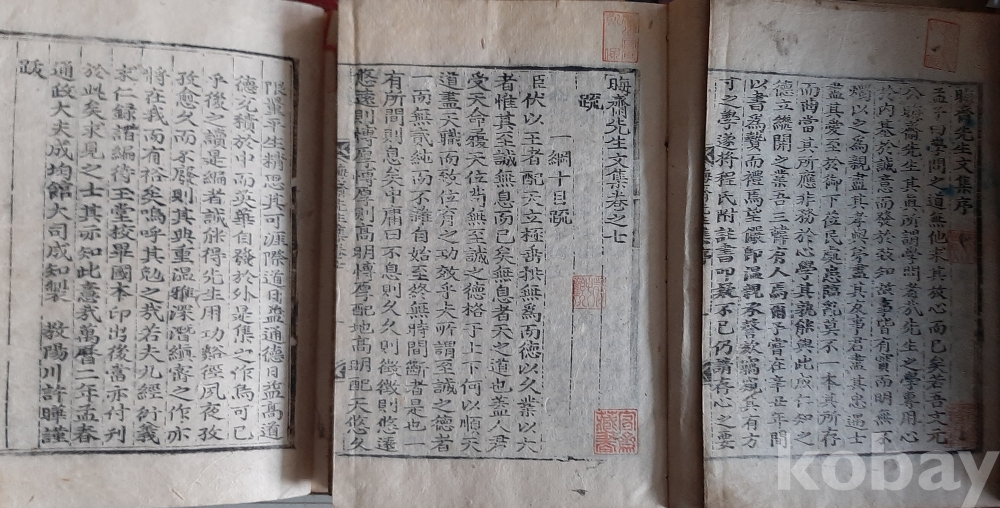 晦齋先生文集序
孟子曰學問之道無他求其放心而已矣若吾文元
公晦齋先生其眞所謂學問者乎先生之學專用心
於内基於誠意而發於致知故事皆有實而明無不
燭以之爲親盡其孝與弟盡其友事君盡其忠遇士
盡其愛至於下莅民處患臨亂莫不 本其所存
而曲當其所應非務於心學其孰能與此成仁知之
德立繼開之業吾三韓有人焉爾予嘗在辛丑年間
以書爲贄而禮焉望儼卽温親不敢 竊 其有方
可之學遂將程氏附註書叩數不已仍請存心之要
晦齋先生文集卷之七
疏
一綱十目疏
臣伏以王者配天立極垂拱無爲而德以久業以大
者惟其至誠無息而已矣無息者天之道也蓋人君
受天命履天位苟無至誠之德格于上下何以順天
道盡天職而致位育之功效乎夫所謂至誠之德者
一而無貳純而不雜自始至終無時間斷者是也一
有所間則息矣中庸曰不息則久久則徵徵則悠遠
悠遠則博厚博厚則高明博厚配地高明配天悠久
限景平生精思其可涯際道日益通德日益高道
德充積於中而英華自發於外是集之作烏可已
乎後之讀是編者誠能得先生用功谿徑夙夜孜
孜愈久而不廢則其典重温雅深潛縝密之作亦
將在我而有裕矣嗚呼其勉之哉若夫九經衍義
求仁録謂編待玉堂校畢國本印出後當亦付刊
於此矣求見之士其亦知此意哉萬曆二年孟春
通政大夫成均館大司成知製 教陽川許曄謹
跋
kobay